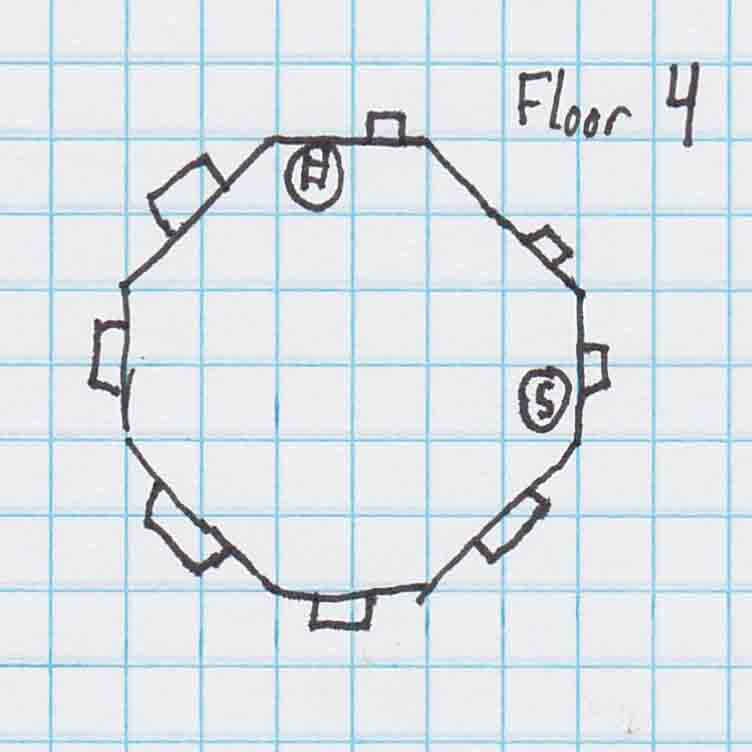 Floor 4
H
S